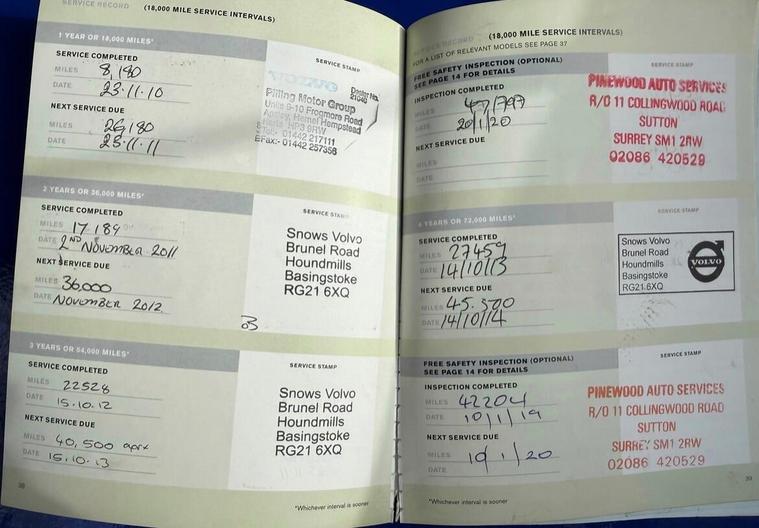 SERVICE RECORD (18,000 MILE SERVICE INTERVALS)
1 YEAR OR 18,000 MILES*
SERVICE COMPLETED
MILES 8,180
DATE 23.11.10
NEXT SERVICE DUE
MILES 26,180
DATE 23.11.11
SERVICE STAMP
VOLVO
Pilling Motor Group
Dealer No.
Units 9-10 Frogmore Road
Apsley, Hemel Hempstead
Herts HP3 9RW
Tel:- 01442 217111
Fax:- 01442 257356
2 YEARS OR 36,000 MILES*
SERVICE COMPLETED
MILES 17189
DATE 2ND NOVEMBER 2011
NEXT SERVICE DUE
MILES 36,000
DATE NOVEMBER 2012
SERVICE STAMP
Snows Volvo
Brunel Road
Houndmills
Basingstoke
RG21 6XQ
3 YEARS OR 54,000 MILES*
SERVICE COMPLETED
MILES 22528
DATE 15.10.12
NEXT SERVICE DUE
MILES 40,500 aprx
DATE 15.10.13
SERVICE STAMP
Snows Volvo
Brunel Road
Houndmills
Basingstoke
RG21 6XQ
38
*Whichever interval is sooner
SERVICE RECORD (18,000 MILE SERVICE INTERVALS)
FOR A LIST OF RELEVANT MODELS SEE PAGE 37
FREE SAFETY INSPECTION (OPTIONAL)
SEE PAGE 14 FOR DETAILS
INSPECTION COMPLETED
MILES 47,797
DATE 20/1/20
NEXT SERVICE DUE
MILES
DATE
SERVICE STAMP
PINEWOOD AUTO SERVICES
R/O 11 COLLINGWOOD ROAD
SUTTON
SURREY SM1 2RW
02086 420529
YEARS OR 72,000 MILES*
SERVICE COMPLETED
MILES 27459
DATE 14/10/13
NEXT SERVICE DUE
MILES 45.500
DATE 14/10/14
SERVICE STAMP
Snows Volvo
Brunel Road
Houndmills
Basingstoke
RG21 6XQ
VOLVO
FREE SAFETY INSPECTION (OPTIONAL)
SEE PAGE 14 FOR DETAILS
INSPECTION COMPLETED
MILES 42204
DATE 10/1/19
NEXT SERVICE DUE
MILES 10/1/20
DATE
SERVICE STAMP
PINEWOOD AUTO SERVICES
R/O 11 COLLINGWOOD ROAD
SUTTON
SURREY SM1 2RW
02086 420529
*Whichever interval is sooner
39